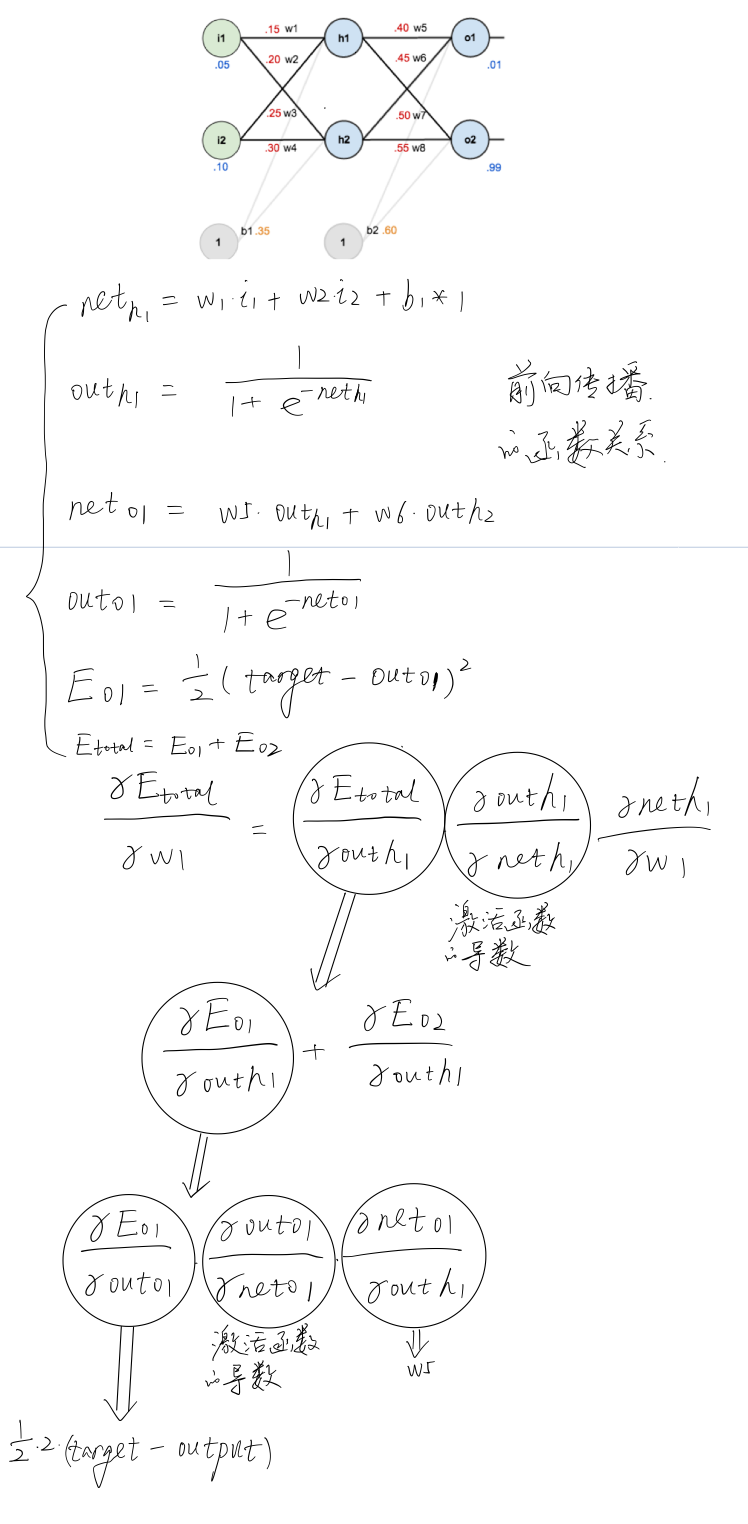 .15 w1 .40 w5
i1 h1 o1
.05 .20 w2 .45 w6 .01
.25 w3 .50 w7
i2 h2 o2
.30 w4 .55 w8
.10 .99
b1 .35 b2 .60
1 1
net_{h_1} = w_1·i_1 + w2·i_2 + b_1 * 1
out_{h_1} = \frac{1}{1 + e^{-net_{h_1}}} 前向传播.
的函数关系.
net_{o1} = w5·out_{h_1} + w6·out_{h_2}
out_{o1} = \frac{1}{1 + e^{-net_{o1}}}
E_{o1} = \frac{1}{2}(target - out_{o1})^2
E_{total} = E_{o1} + E_{o2}
\frac{γE_{total}}{γw_1} = \frac{γE_{total}}{γout_{h_1}} \frac{γout_{h_1}}{γnet_{h_1}} \frac{γnet_{h_1}}{γw_1}
激活函数
的导数
\frac{γE_{o1}}{γout_{h_1}} + \frac{γE_{o2}}{γout_{h_1}}
\frac{γE_{o1}}{γout_{o1}} · \frac{γout_{o1}}{γnet_{o1}} · \frac{γnet_{o1}}{γout_{h_1}}
激活函数
的导数 w5
\frac{1}{2}·2·(target - output)